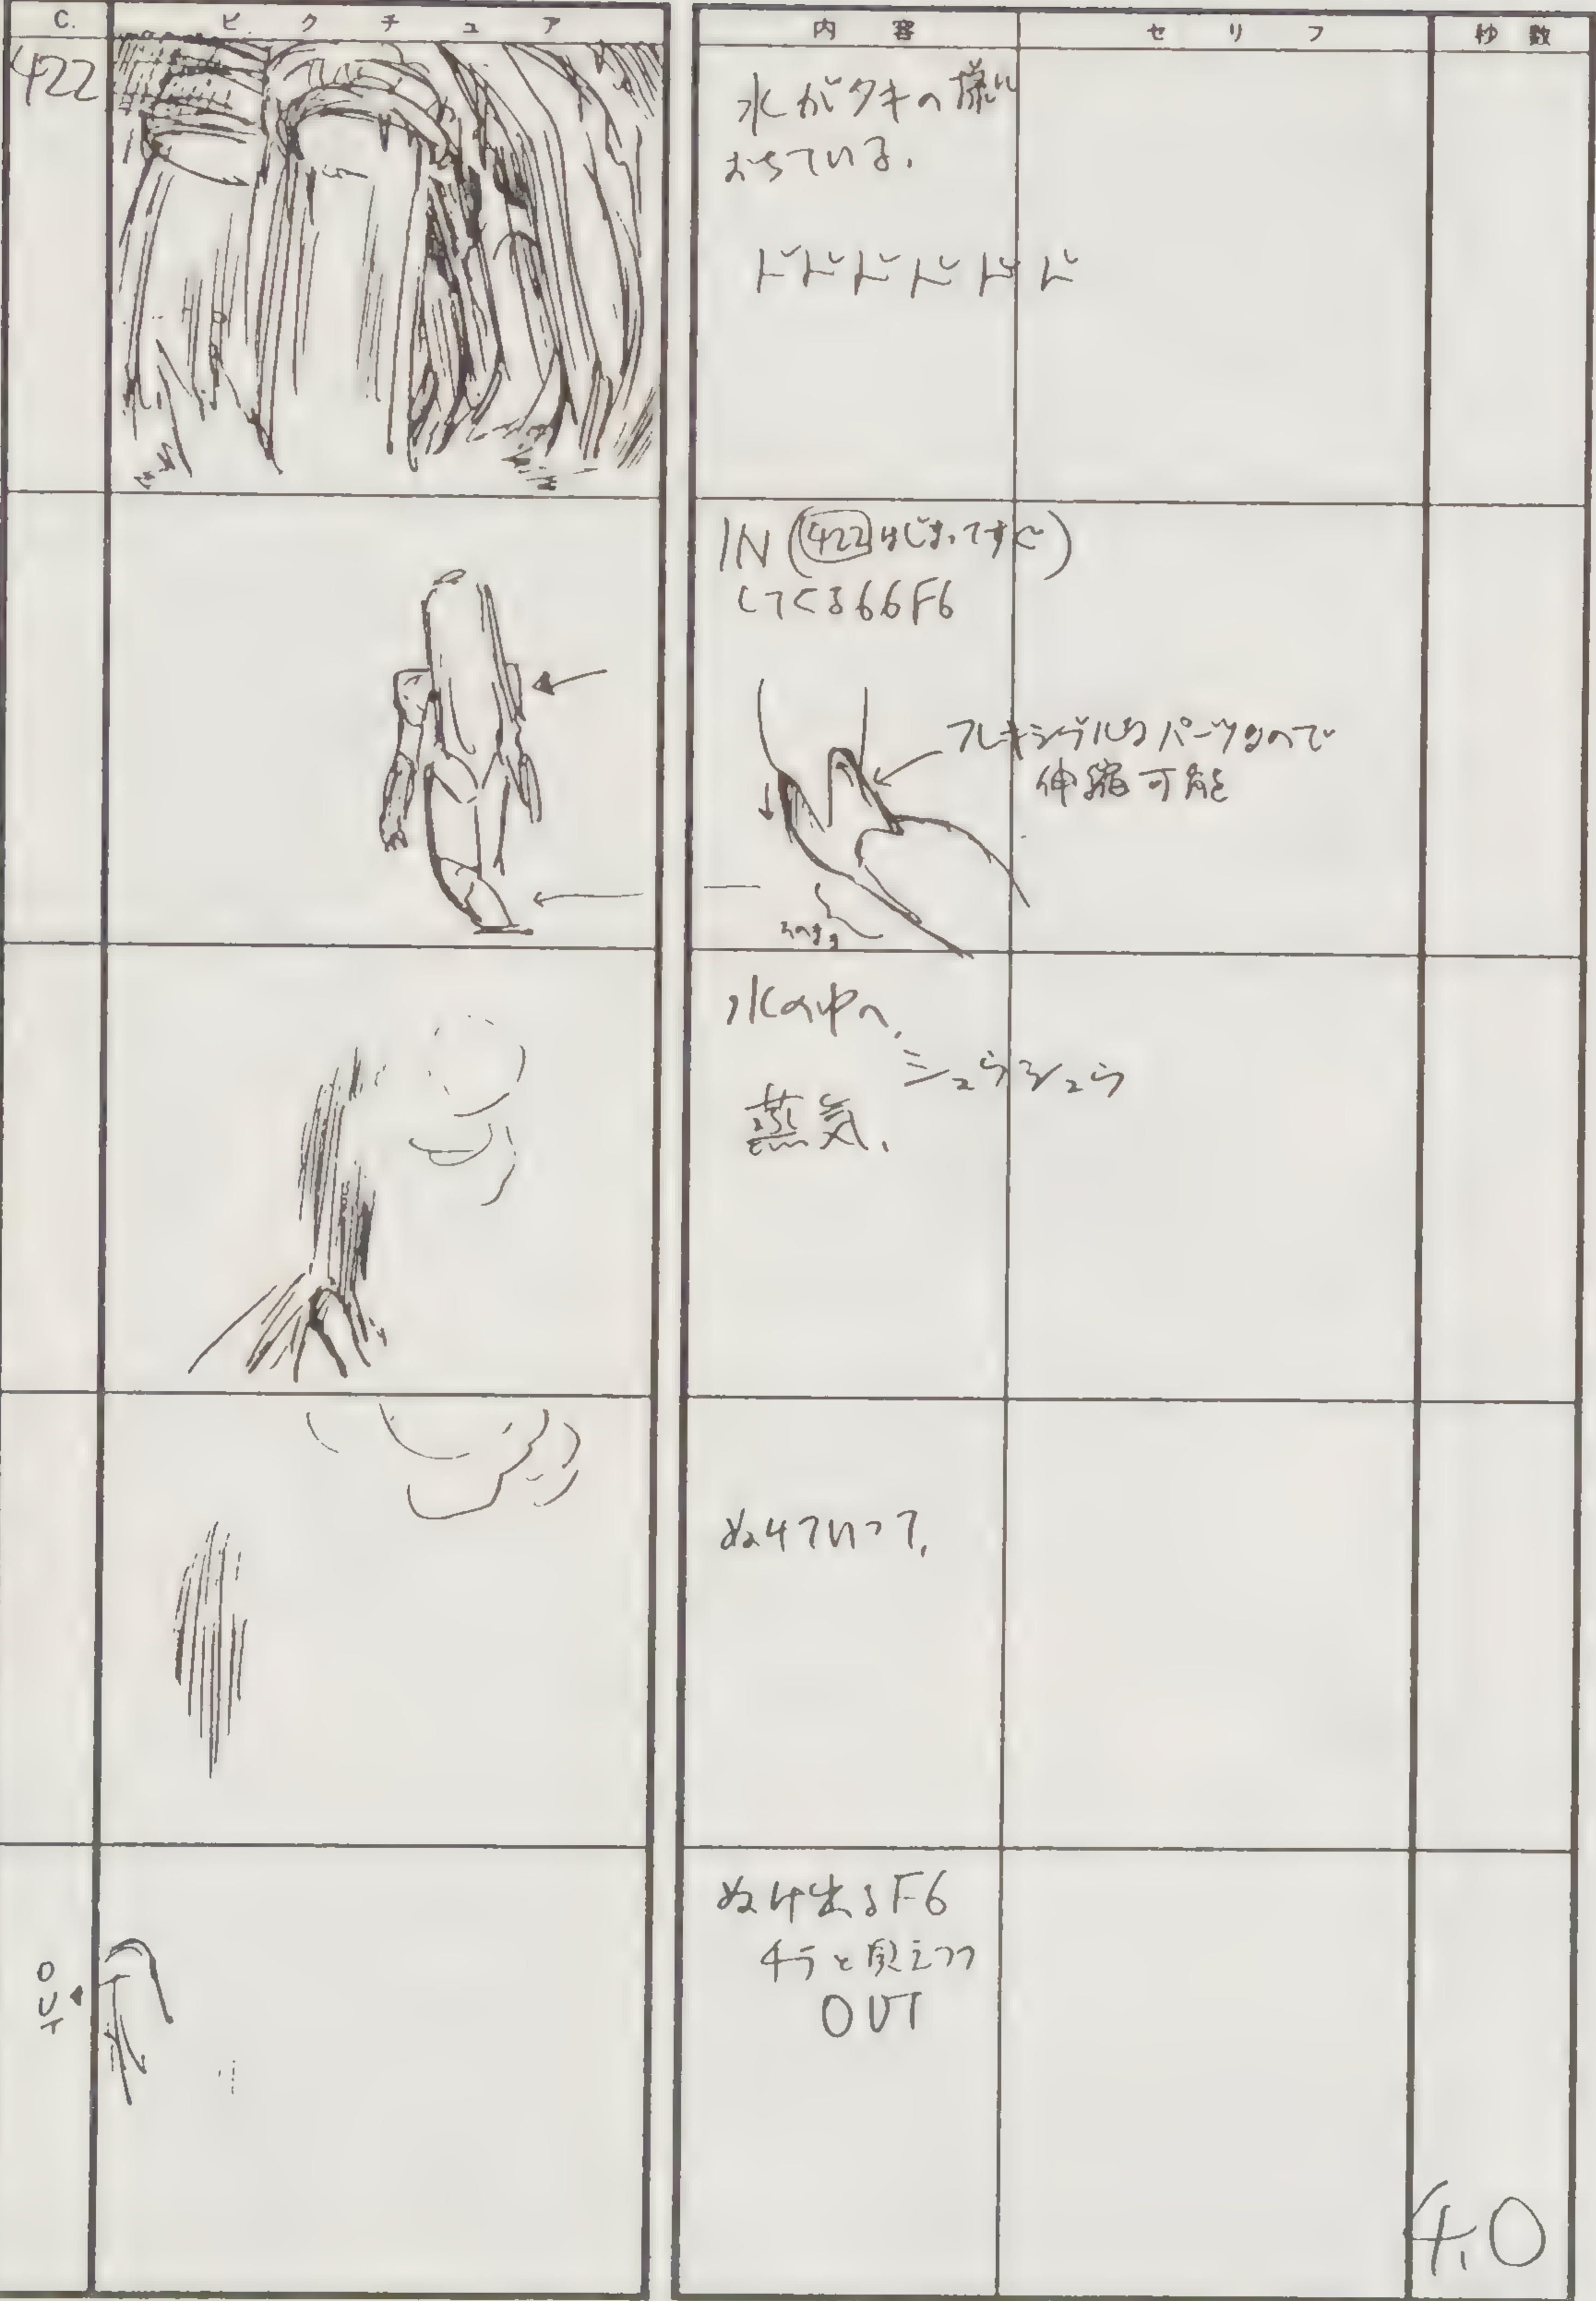 C. ピクチュア 内容 セリフ 秒数
422
水がタキの様に
おちている.
ドドドドドド
IN (422はじまってすぐ)
してくる66F6
フレキシブルなパーツなので
伸縮可能
水の中へ.
シュウシュウ
蒸気.
ぬけていって.
ぬけ出るF6
チラと見えつつ
OUT
OUT
4.0